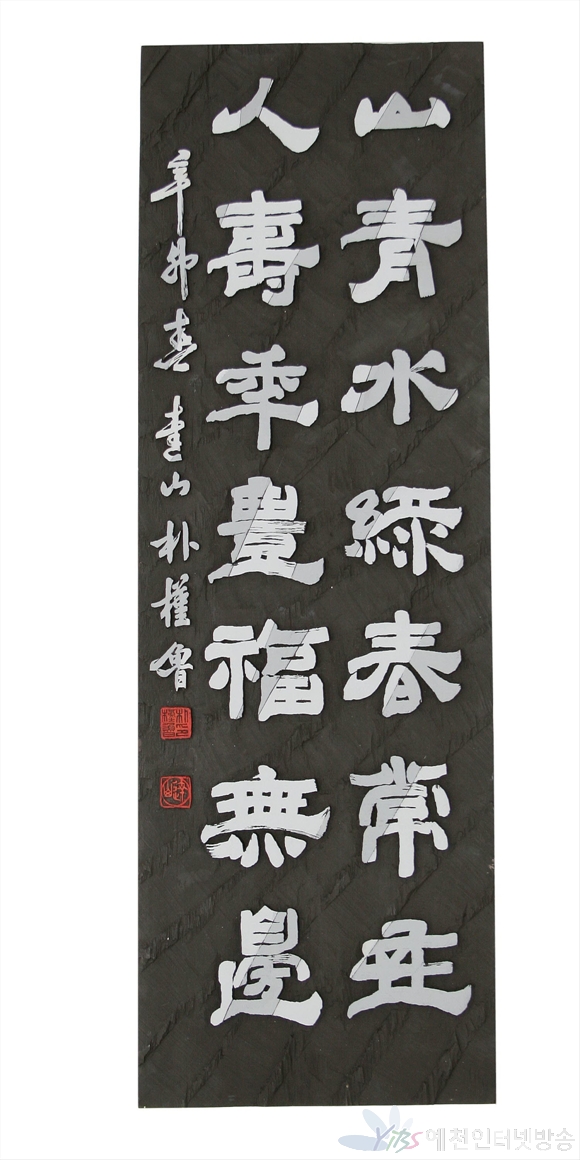 山青水綠春常在
人壽年豊福無邊
辛卯春 建山 朴權魯
YIBS 예천인터넷방송